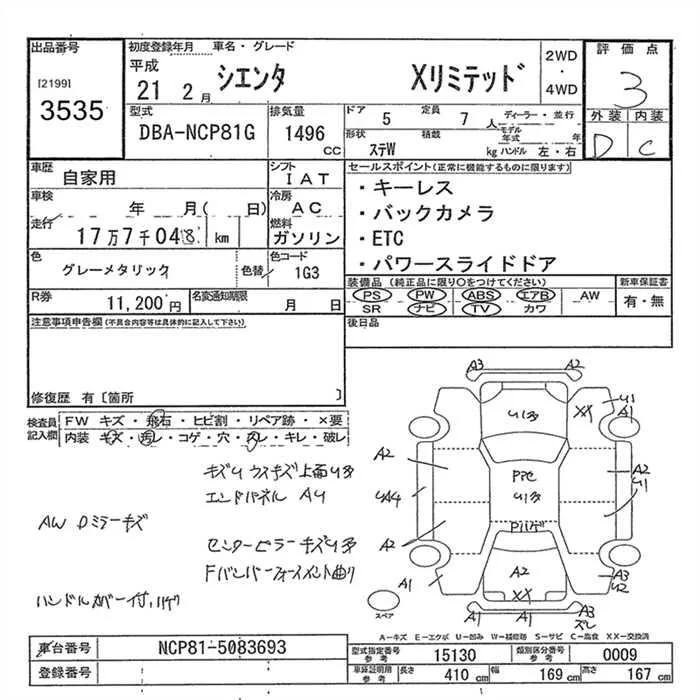 出品番号
[2199]
3535
初度登録年月 車名・グレード
平成
21 2月 シエンタ Xリミテッド
2WD
・
4WD
評価点
3
外装 内装
D C
型式
DBA-NCP81G
排気量
1496
CC
ドア 5 定員 7 人
形状 ステW 積載 kg
ディーラー・並行
モデル年式 年
ハンドル 左・右
車歴 自家用
シフト IAT
車検 年 月( 日)
冷房 AC
走行 17万7千048 km
燃料 ガソリン
色 グレーメタリック 色替
色コード 1G3
R券 11,200円 名変通知期限 月 日
セールスポイント(正常に機能するものに限ります)
・キーレス
・バックカメラ
・ETC
・パワースライドドア
装備品 (純正品に限り○をつけてください)
PS PW ABS エアB AW
SR ナビ TV カワ
新車保証書
有・無
後日品
注意事項申告欄(不具合内容等は具体的に記入して下さい)
修復歴 有〔箇所 〕
検査員記入欄
FW キズ・飛石・ヒビ割・リペア跡・×要
内装 キズ・汚レ・コゲ・穴・スレ・キレ・破レ
エンドパネル AU
AW Dミラーキズ
ハンドルカバー付ハゲ
A3 A2
U1
A1
XX
A2
A2
U1
UA4
A2
A2
XX
A1
A3
U2
A1 A1
スペア
A-キズ E-エクボ U-凹み W-補修跡 S-サビ C-腐食 XX-交換済
車台番号 NCP81-5083693
登録番号
型式指定番号 参考 15130 類別区分番号 参考 0009
車庫証明用 参考 長さ 410cm 幅 169cm 高さ 167cm